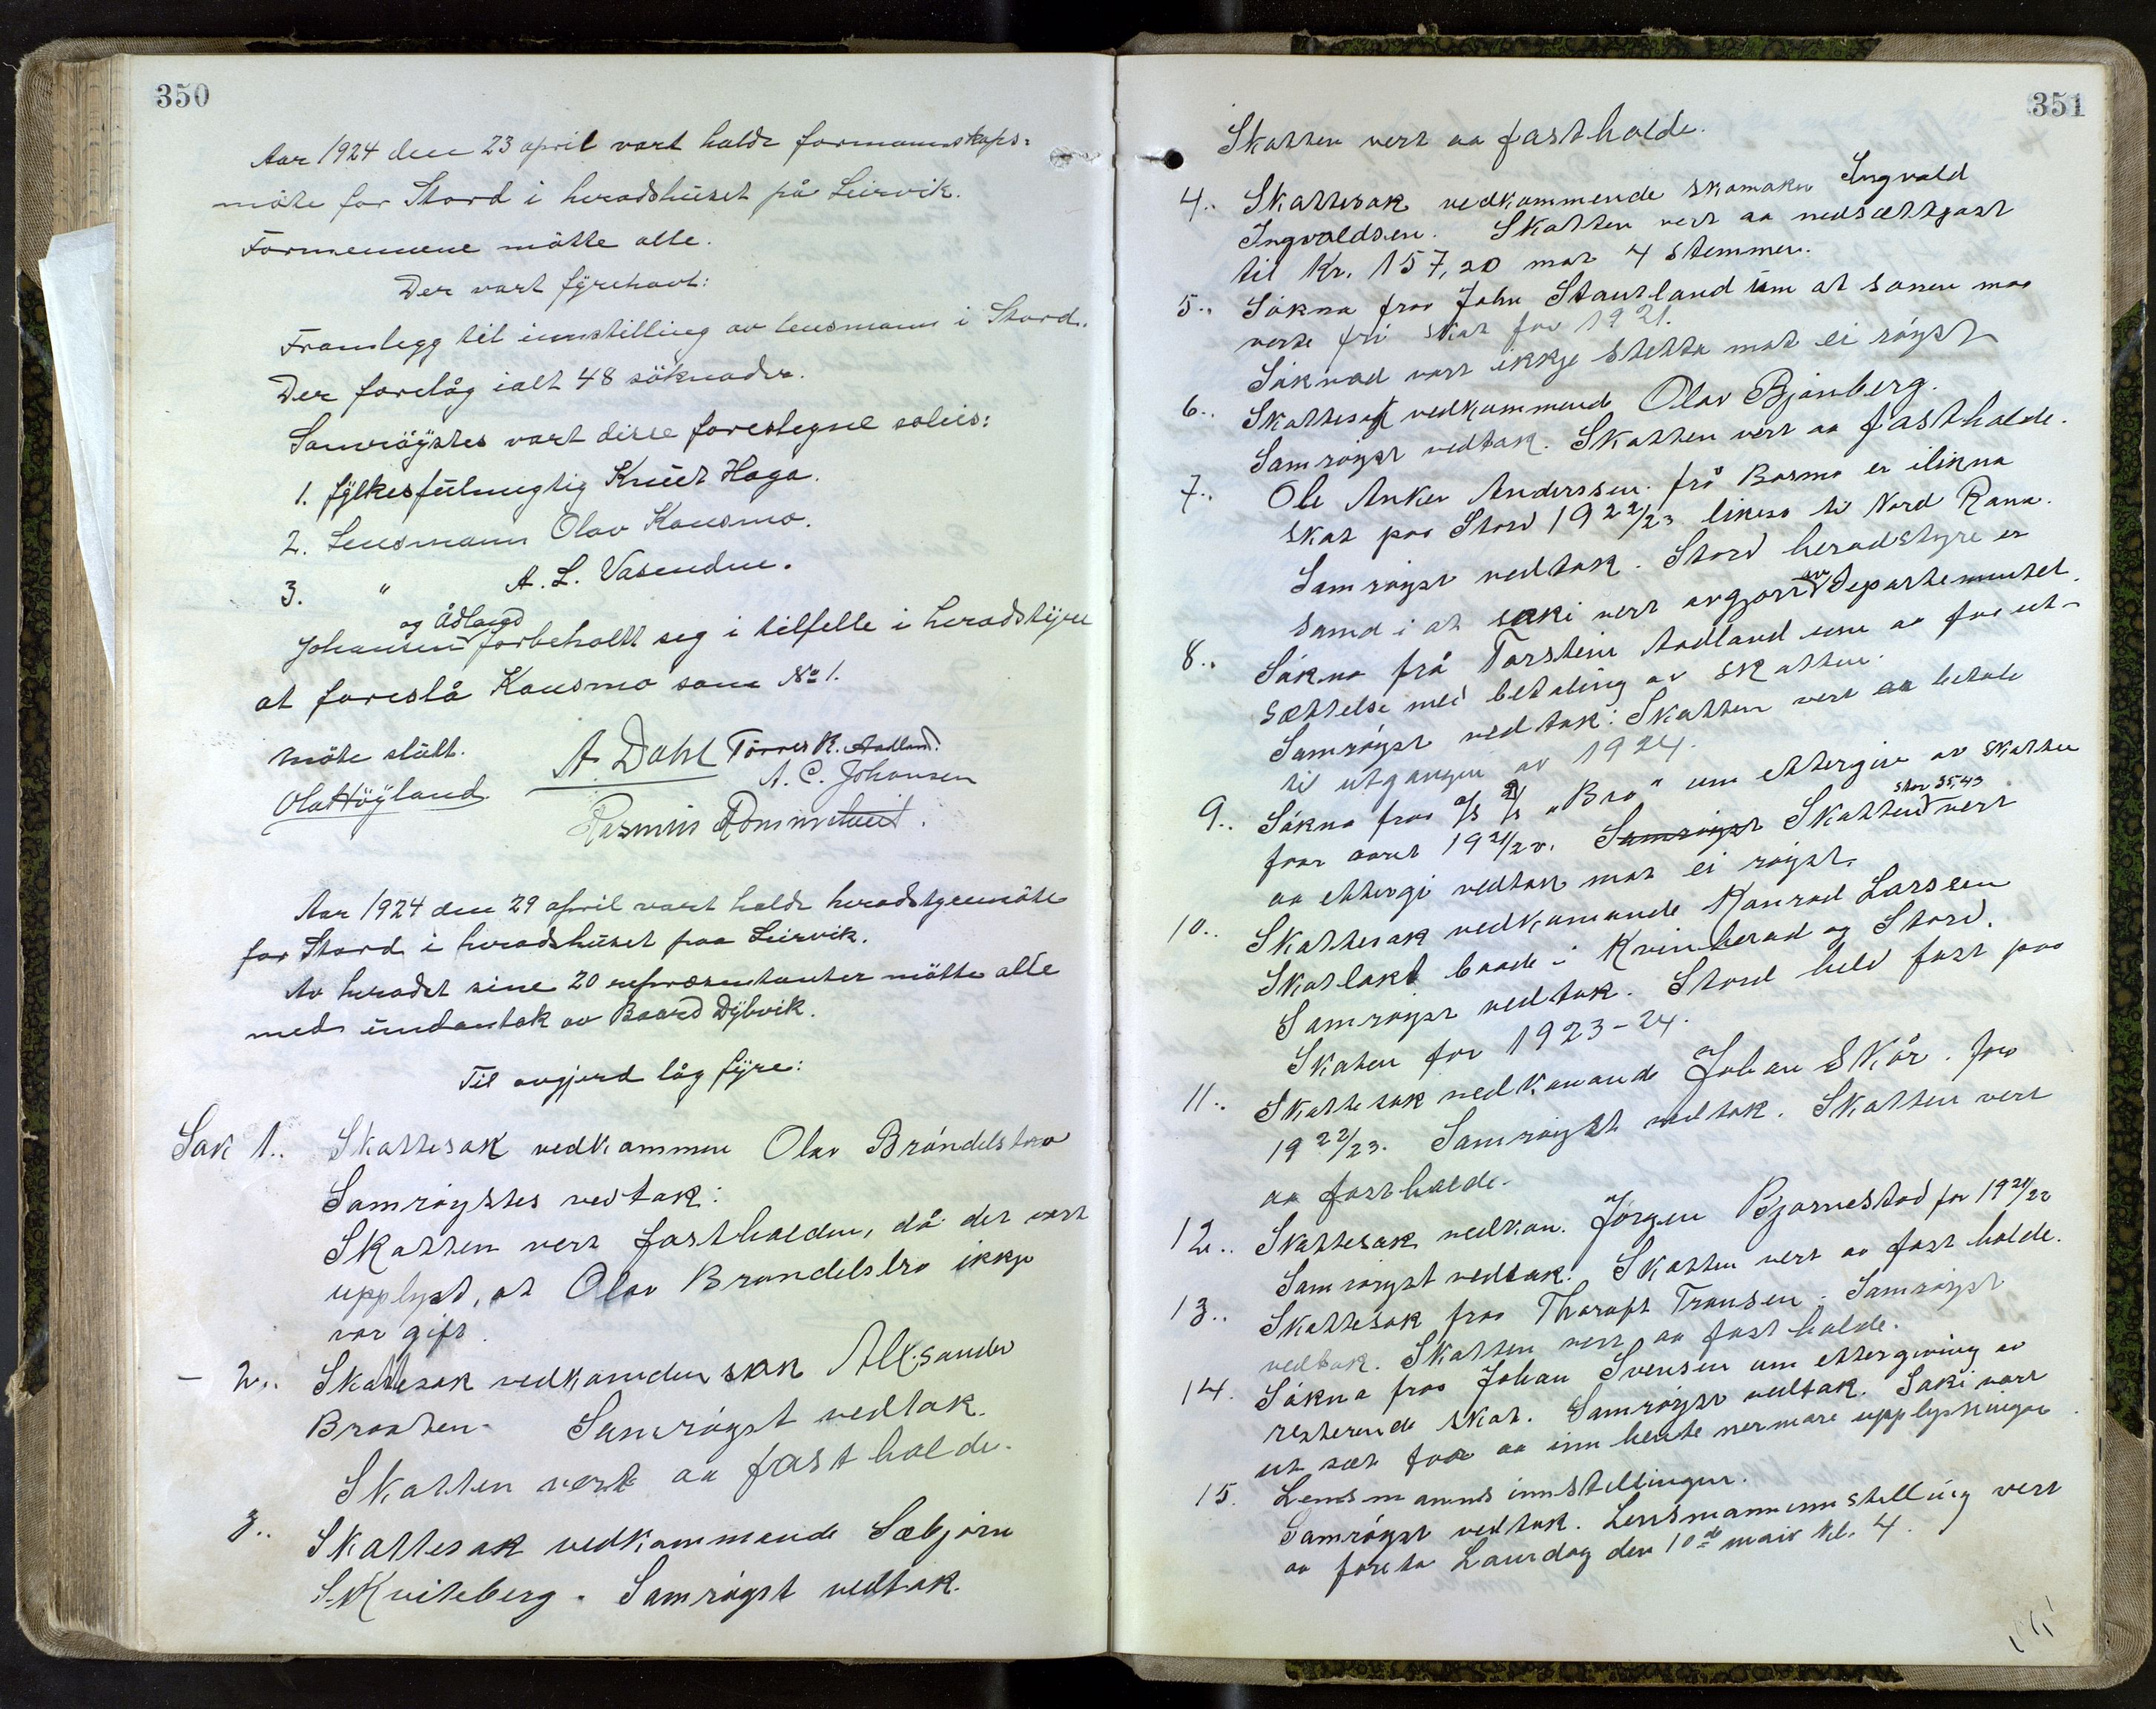 350
Aar 1924 den 23 april vart halde formannskaps-
möte for Stord i heradshuset på Leirvik.
Formennene mötte alle.
Der vart fyrehavt:
Framlegg til innstilling av lensmann i Stord.
Der forelåg ialt 48 söknader.
Samröystes vart disse foreslegne soleis:
1. fylkesfulmegtig Knut Haga.
2. Lensmann Olav Kausmo.
3. " A. L. Vasenden.
og Ådland
Johansen forbeholtt seg i tilfelle i heradstyre
at foreslå Kausmo som No 1.
Möte slutt.
A. Dahl Törres K. Aadland.
Ola Höyland A. C. Johansen
Rasmus Rommetveit.
Aar 1924 den 29 april vart halde heradstyremöte
for Stord i heradshuset paa Leirvik.
Av heradet sine 20 representanter mötte alle
med undantak av Baard Dybvik.
Til avgjerd låg fyre:
Sak 1.. Skattesak vedkommen Olav Bröndelsbro
Samröystes vedtak:
Skatten vert fastholden, då det vart
upplyst, at Olav Brøndelsbro ikkje
var gift.
- 2.. Skattesak vedkomden sak Alexsander
Braaten. Samrøyst vedtak.
Skatten vert aa fastholde.
3.. Skattesak vedkommende Sæbjørn
S. Kviteberg. Samrøyst vedtak.
351
Skatten vert aa fastholde.
4.. Skattesak vedkommende skomaker Ingvald
Ingvaldsen. Skatten vert aa nedsett
til Kr. 157,20 mot 4 stemmer.
5.. Søkna fraa John Stautland um at sonen maa
verte fri skat for 1921.
Søknad vart ikkje stetta mot ei røyst
6.. Skattesak vedkommend Olav Bjånberg.
Samrøyst vedtak. Skatten vert aa fastholde.
7.. Ole Anker Anderssen frå Bosmo er ilikna
skat paa Stord 1922/23 likeso til Nord Rana.
Samrøyst vedtak. Stord heradstyre er
samd i at saki vert avgjort av Departementet.
8.. Søkna frå Torstein Aadland um aa faa ut-
sættelse med betaling av skatten.
Samrøyst vedtak: Skatten vert aa betale
til utgangen av 1924.
9.. Søkna fraa a/s d/s "Bro" um ettergive av skatten
stor 35,43
for aaret 1921/22. Samrøyst Skatten vert
aa ettergi vedtak mot ei røyst.
10.. Skattesak vedkomande Konrad Larssen
Skatlakt baade i Kvinherad og Stord.
Samrøyst vedtak. Stord held fast paa
Skaten for 1923-24.
11.. Skattesak vedkomande Johan Skår. for
1922/23. Samrøystt vedtak. Skatten vert
aa fastholde.
12.. Skattesak vedkom. Jørgen Bjørnestad for 1921/22
Samrøyst vedtak: Skatten vert aa fast holde.
13.. Skattesak fraa Tharaft Transen. Samrøyst
vedtak. Skatten vert aa fast holde.
14. Søkna fraa Johan Svensen um ettergiving av
resterende skat. Samrøyst vedtak. Saki vart
ut sæt for aa inn hente nermare upplysningar
15. Lensmanns innstellingen.
Samrøyst vedtak. Lensmanninnstelling vert
aa foreta Laurdag den 10de mai kl. 4.